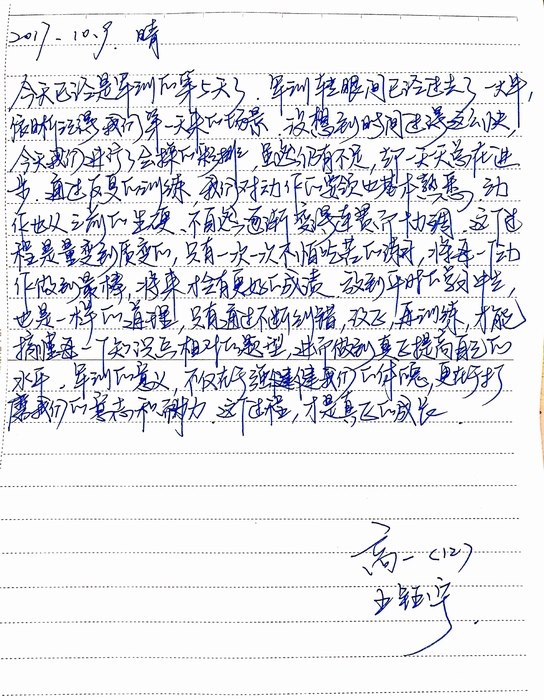 2017.10.9. 晴
今天已经是军训的第5天了，军训转眼间已经过去了一大半，
依昨记得我们第一天来的场景，没想到时间过得这么快，
今天我们进行了会操的彩排，虽然仍有不足，却一天天总在进
步。通过反复的训练，我们对动作的要领也基本熟悉，动
作也从之前的生硬、不自然逐渐变得连贯而协调。这个过
程是量变到质变的，只有一次一次不怕吃苦的练习，将每一个动
作做到最棒，将来才会有更好的成绩。放到平时的学习中去，
也是一样的道理，只有通过不断纠错，改正，再训练，才能
搞懂每一个知识点相对的题型，进而做到真正提高自己的
水平。军训的意义，不仅在于强健我们的体魄，更在于打
磨我们的意志和耐力。这个过程，才是真正的成长
高一（12）
王钰宇